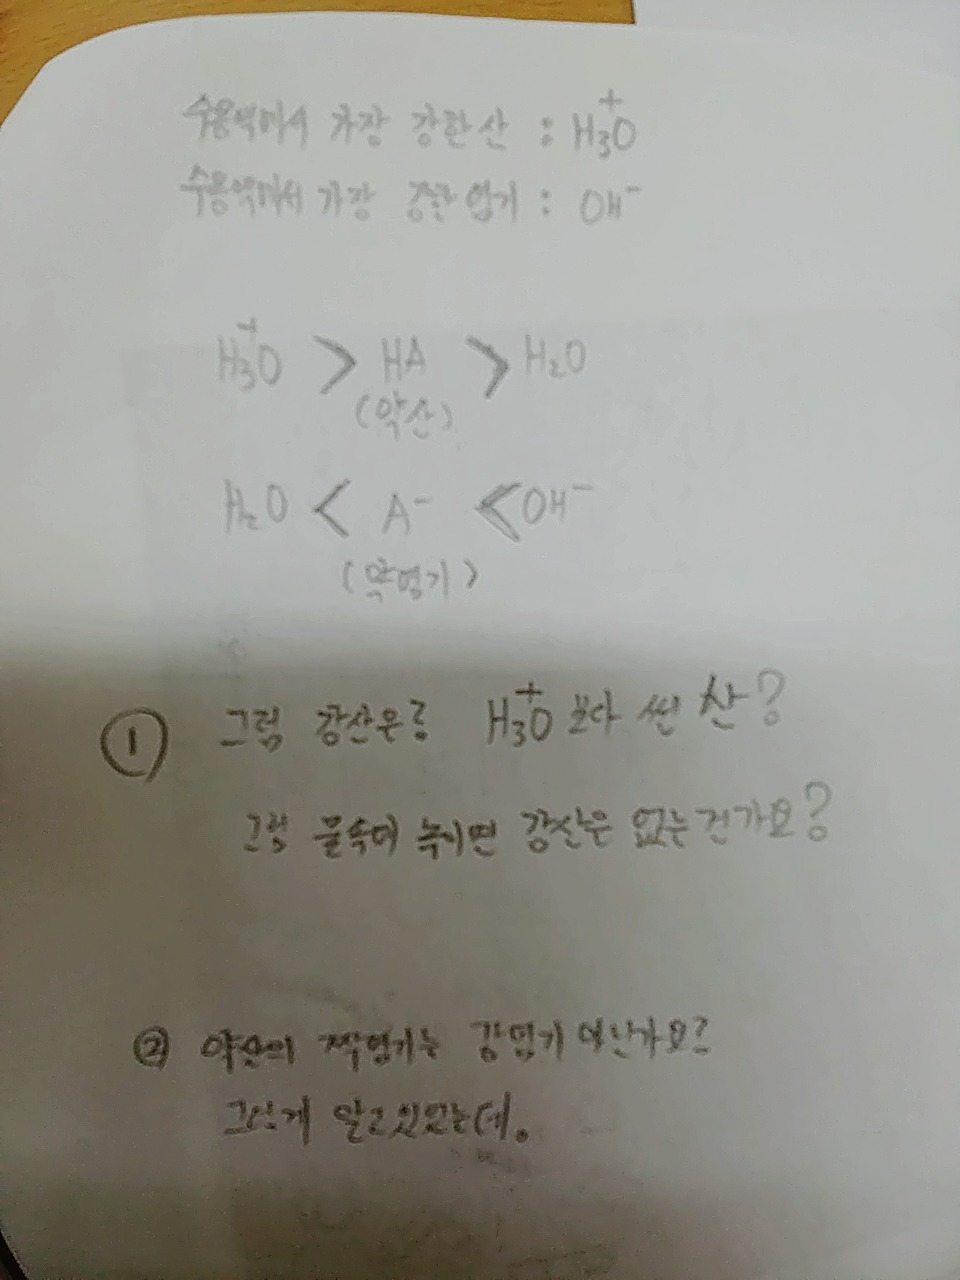 수용액에서 가장 강한 산 : H₃O⁺
수용액에서 가장 강한 염기 : OH⁻
H₃O⁺ > HA > H₂O
(약산)
H₂O < A⁻ < OH⁻
(약염기)
① 그럼 강산은? H₃O⁺ 보다 쎈 산?
그럼 물속에 녹이면 강산은 없는건가요?
② 약산의 짝염기는 강염기 아닌가요?
그렇게 알고있었는데.